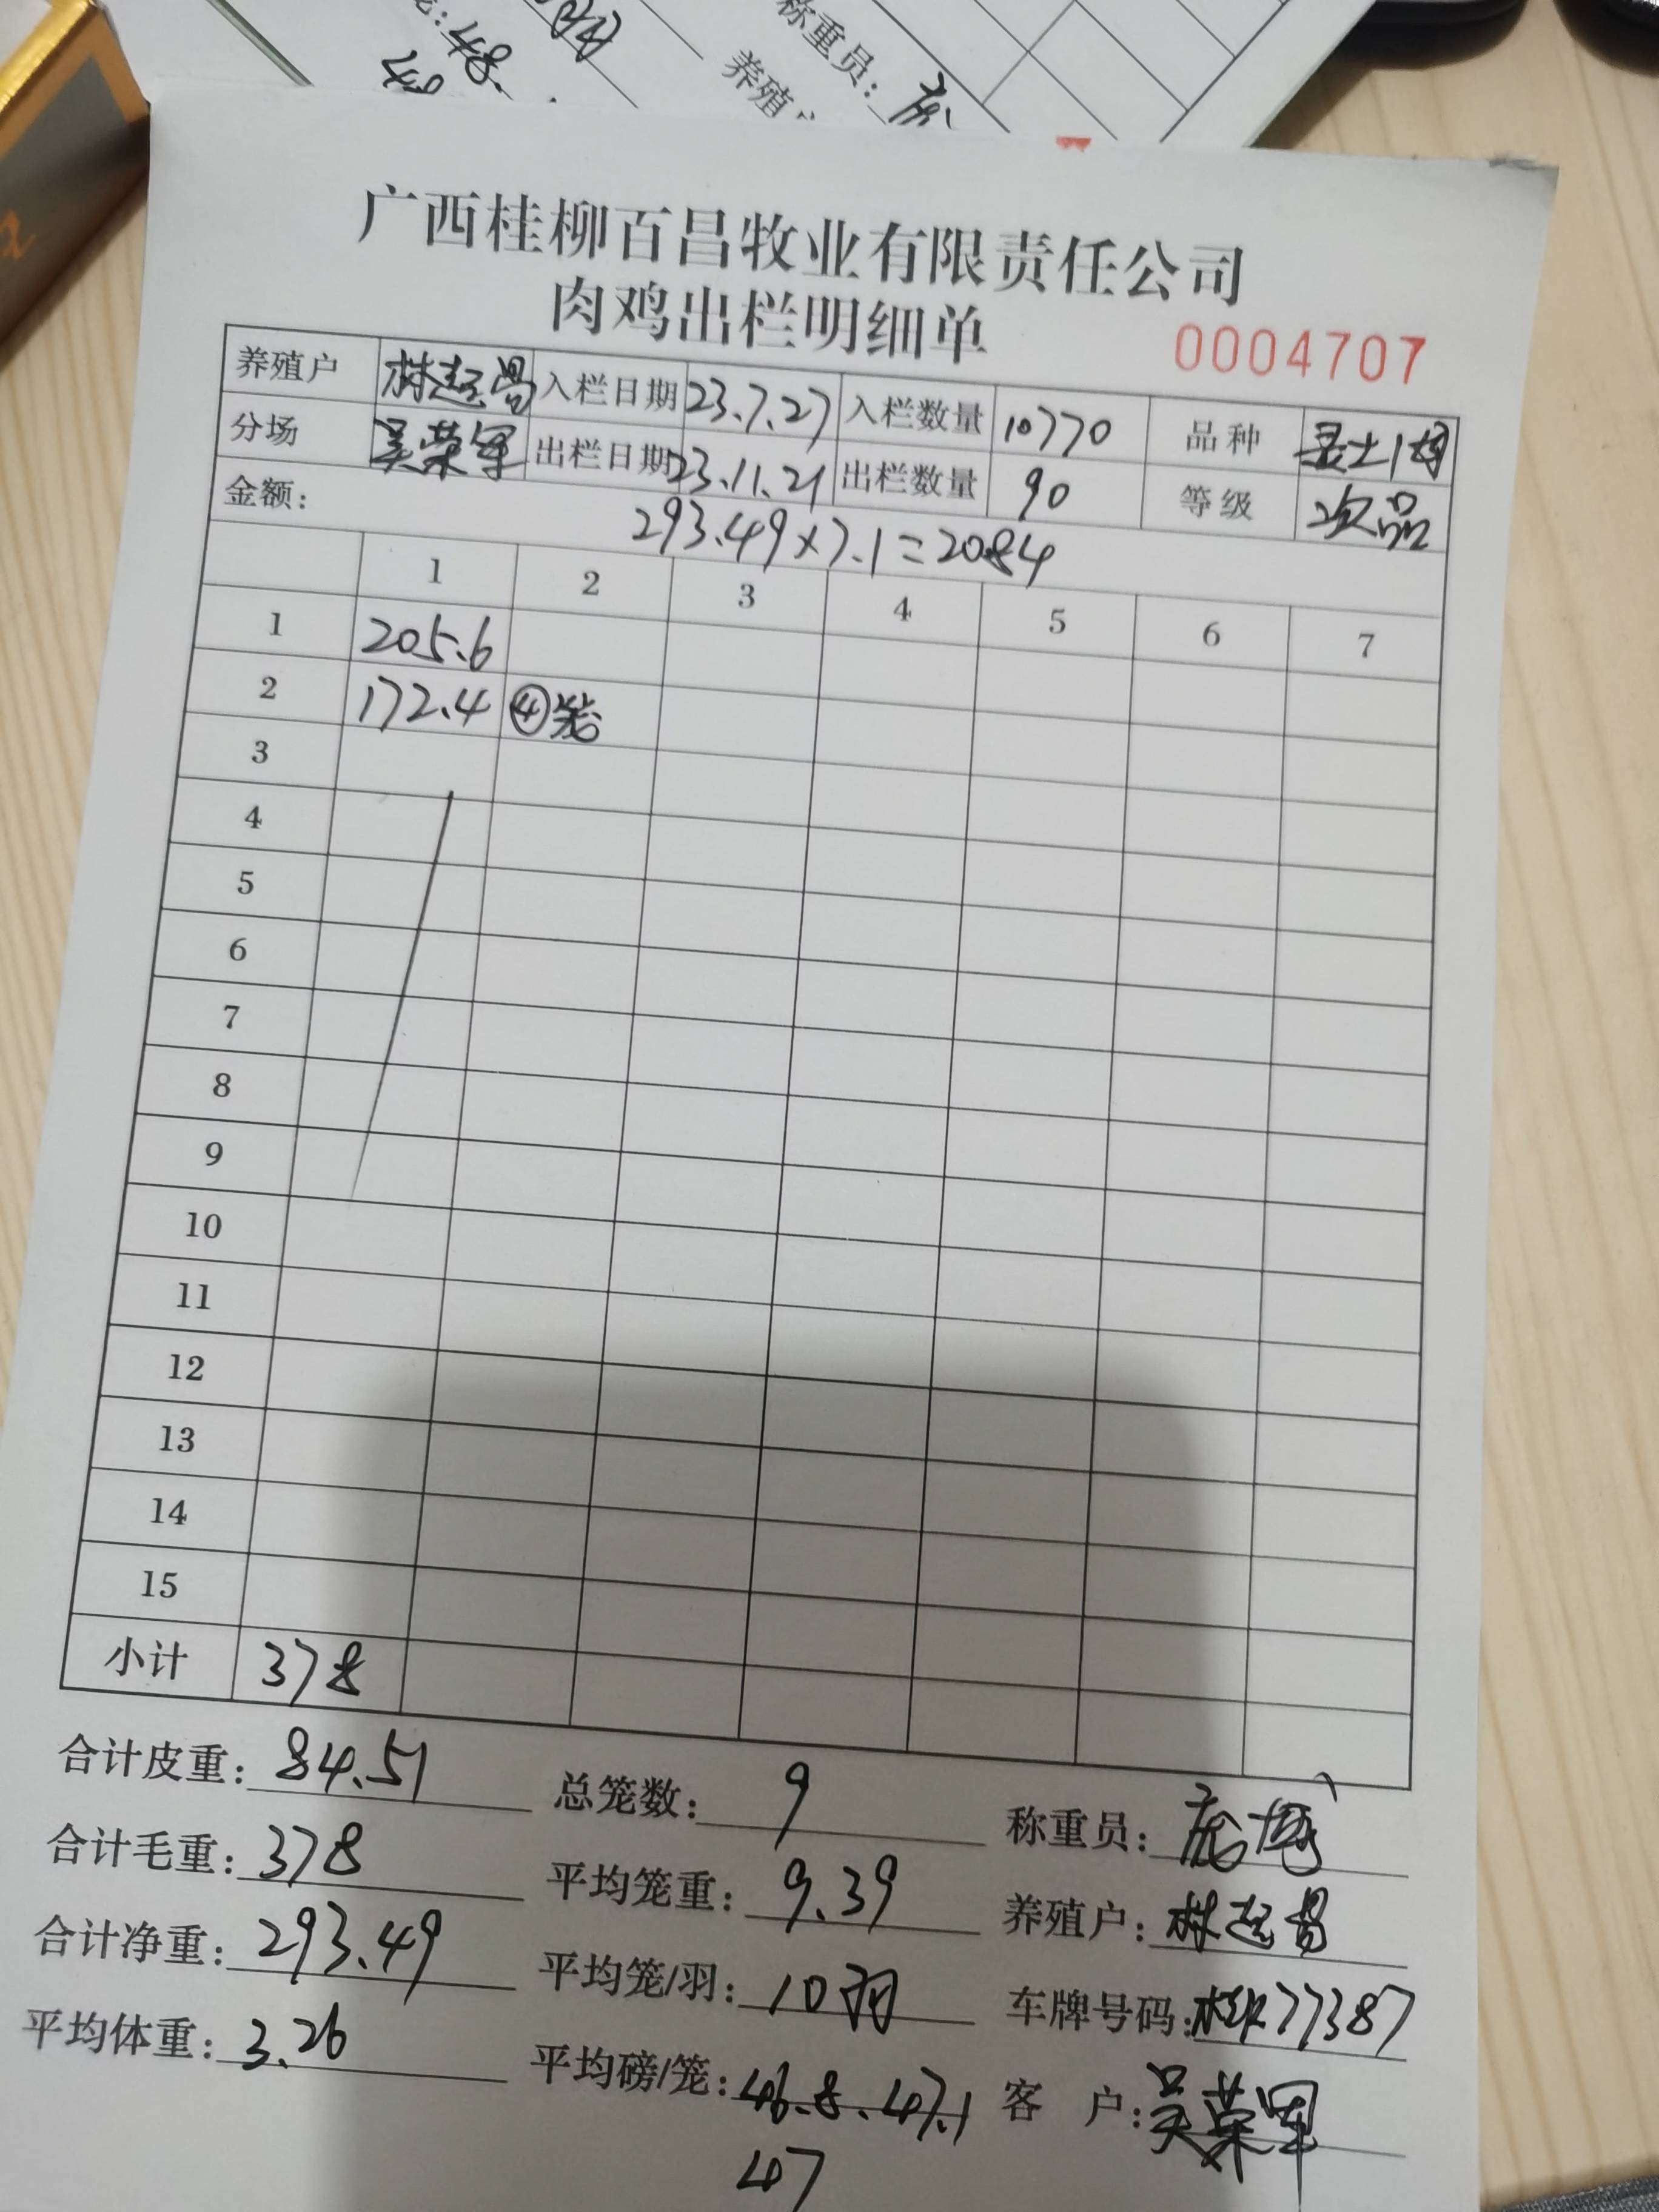 称重员:
养殖
48.
48
广西桂柳百昌牧业有限责任公司
肉鸡出栏明细单
0004707
养殖户 林起昌 入栏日期 23.7.27 入栏数量 10770 品种
分场 吴荣军 出栏日期 23.11.21 出栏数量 90 等级 次品
金额: 293.49×7.1=2084
1 2 3 4 5 6 7
1 205.6
2 172.4 ④笼
3
4
5
6
7
8
9
10
11
12
13
14
15
小计 378
合计皮重: 84.51 总笼数: 9 称重员:
合计毛重: 378 平均笼重: 9.39 养殖户: 林起昌
合计净重: 293.49 平均笼/羽: 10羽 车牌号码: 77387
平均体重: 3.26 平均磅/笼: 46.8.47.1 客户: 吴荣军
47